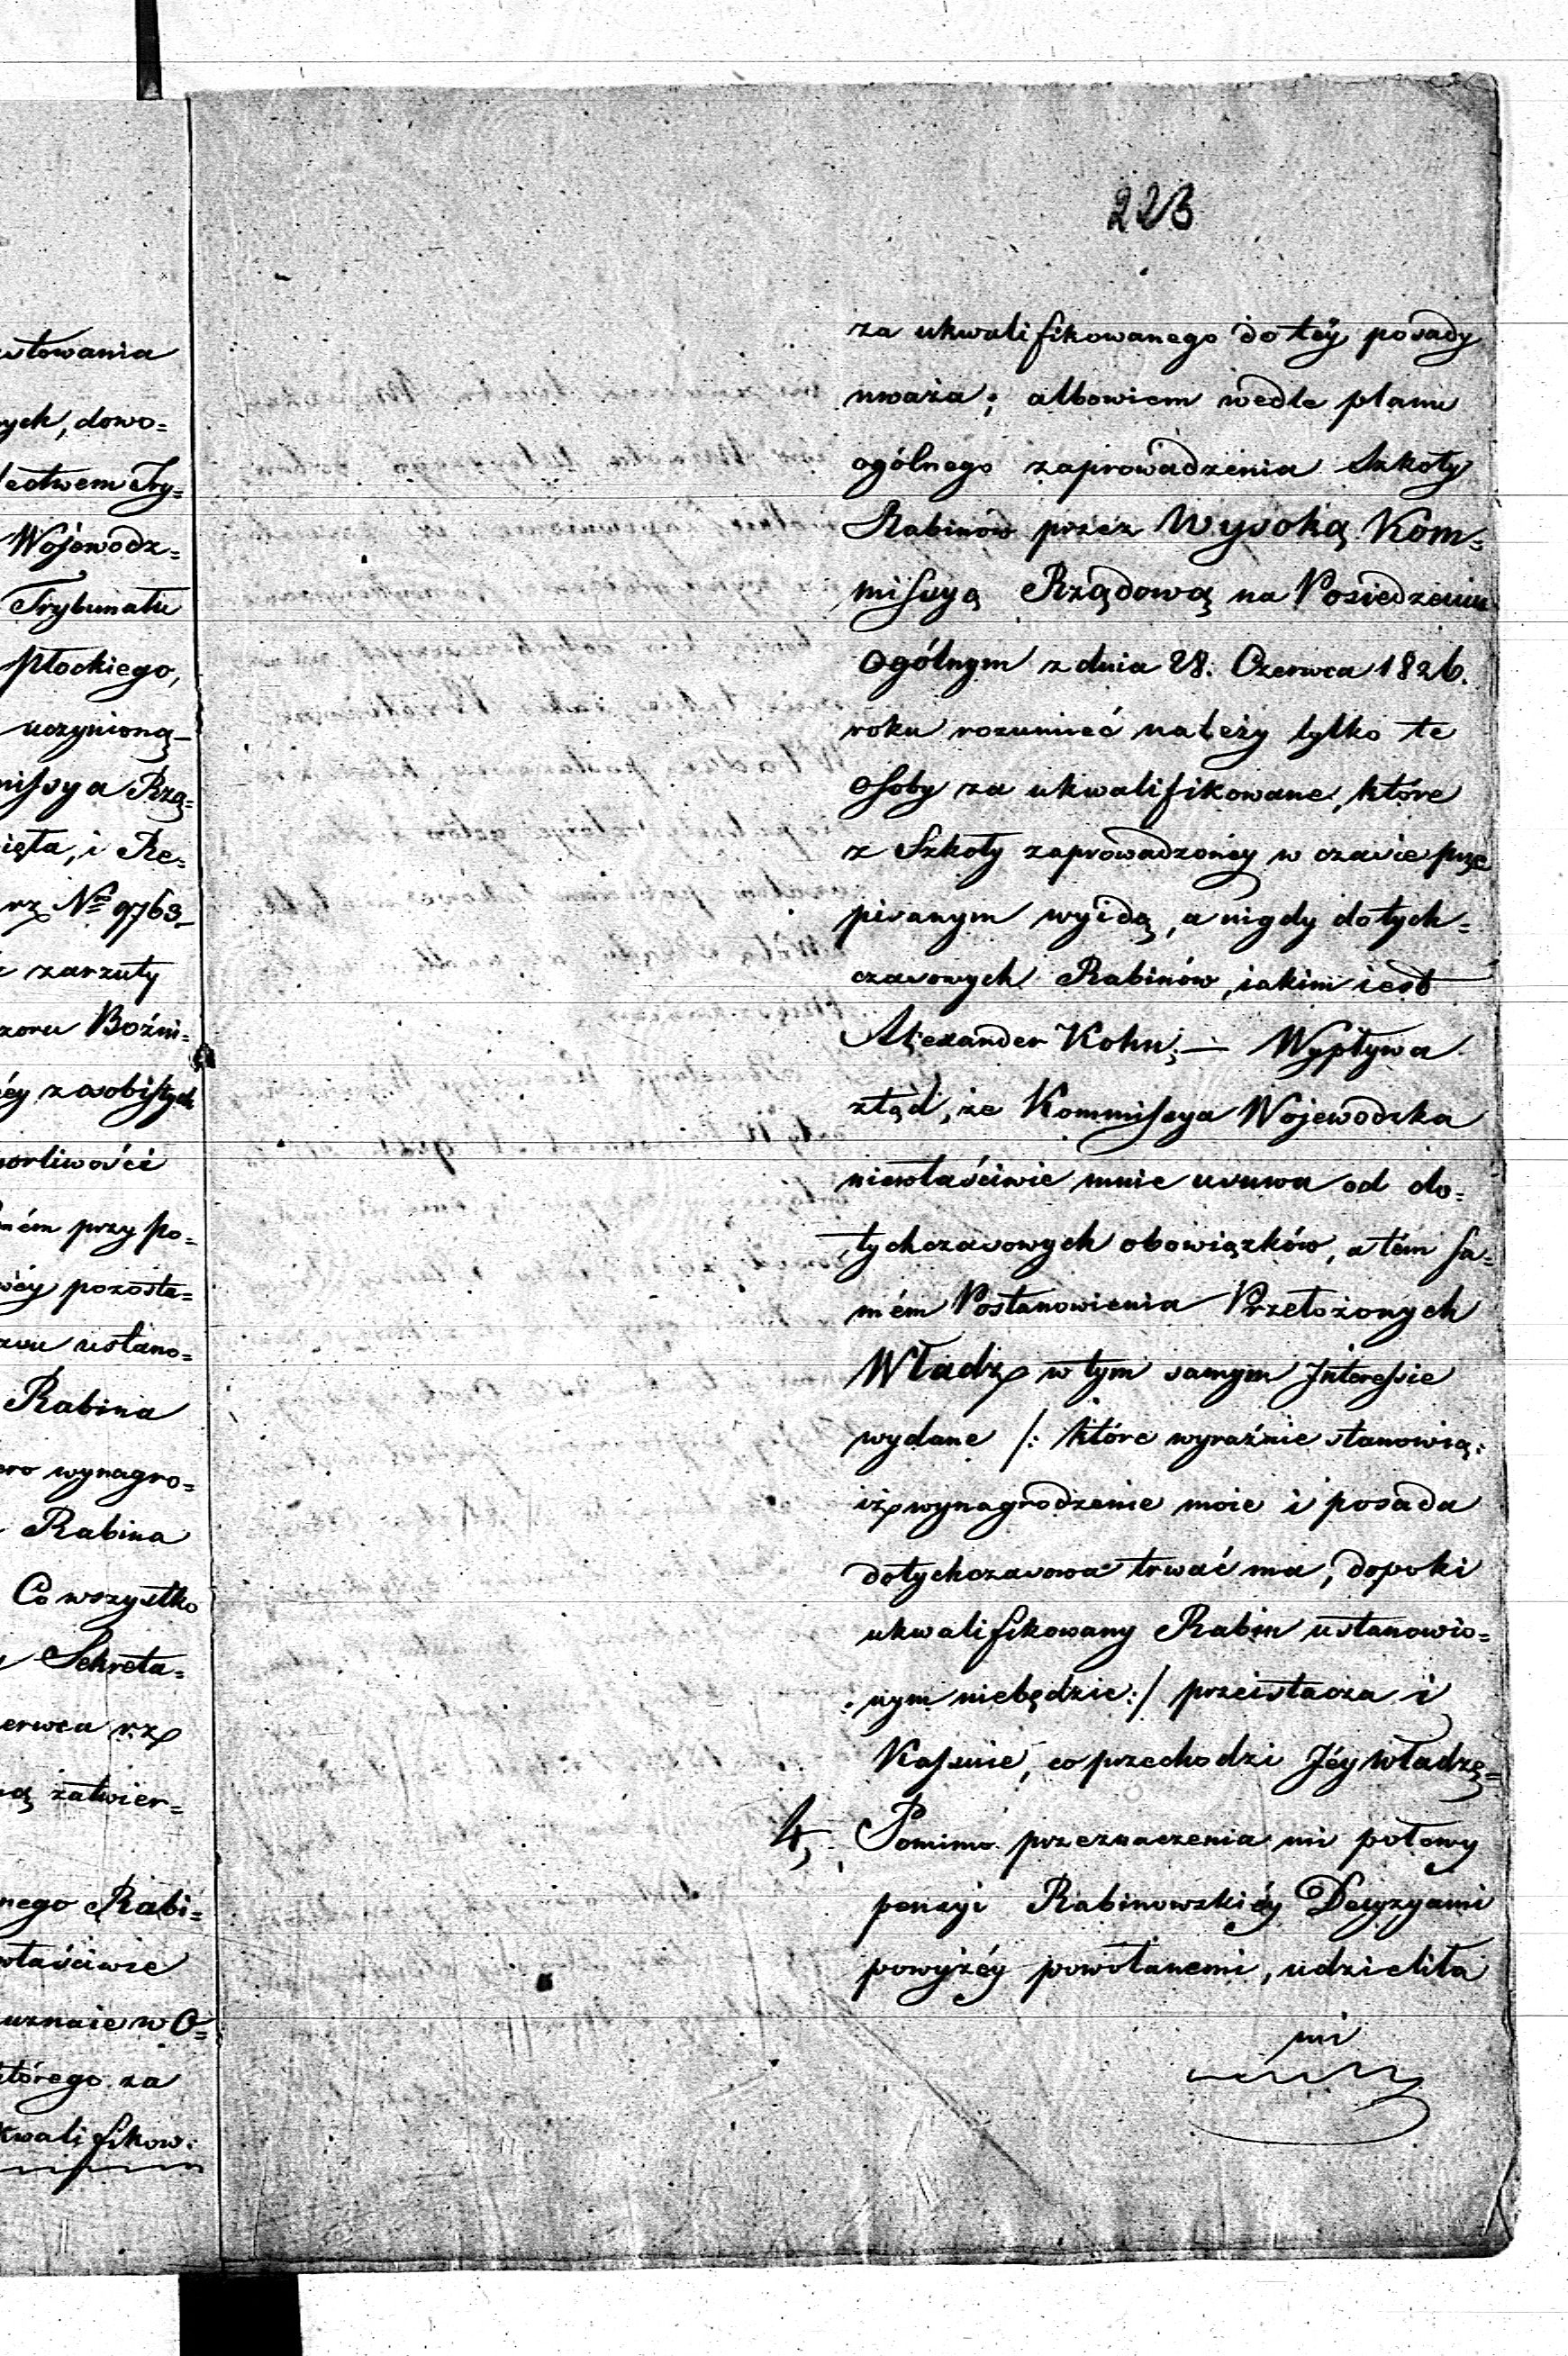 223
za ukwalifikowanego do téy posady
uważa; albowiem wedle planu
ogólnego zaprowadzenia Szkoły
Rabinów przez Wysoką Kom=
missyą Rządową na Posiedzeniu
Ogólnym z dnia 28. Czerwca 1826.
roku rozumieć należy tylko te
Osoby za ukwalifikowane, które
z Szkoły zaprowadzonéy w czasie prze
pisanym wyidą, a nigdy dotych=
czasowych Rabinów, iakim iest
Alexander Kohn; — Wypływa
ztąd, że Kommissya Wojewodzka
niewłaściwie mnie usuwa od do=
tychczasowych obowiązków, a tém sa=
mém Postanowienia Przełożonych
Władz w tym samym Interessie
wydane /: które wyraźnie stanowią:
iż wynagrodzenie moie i posada
dotychczasowa trwać ma, dopoki
ukwalifikowany Rabin ustanowio=
nym niebędzie:/ przeistacza i
Kassuie, co przechodzi Jéy władzę=
4, Pomimo przeznaczenia mi połowy
pensyi Rabinowskiéy Decyzyami
powyżéy powołanemi, udzieliła
mi
stowania
ych, dowo=
dectwem Try=
Wójewodz=
Trybunału
Płockiego,
uczynioną
missya Rzą=
ięta, i Re=
rz No 9763
zarzuty
zoru Boźni=
éy z asobistych
orliwości
ném przy po=
wéy pozosta=
zvu ustano=
Rabina
ero wynagro=
Rabina
Co wszystko
Sekreta=
erwca rz
ą zatwier=
nego Rabi=
właściwie
uznaie w O=
którego za
kwalifikow: